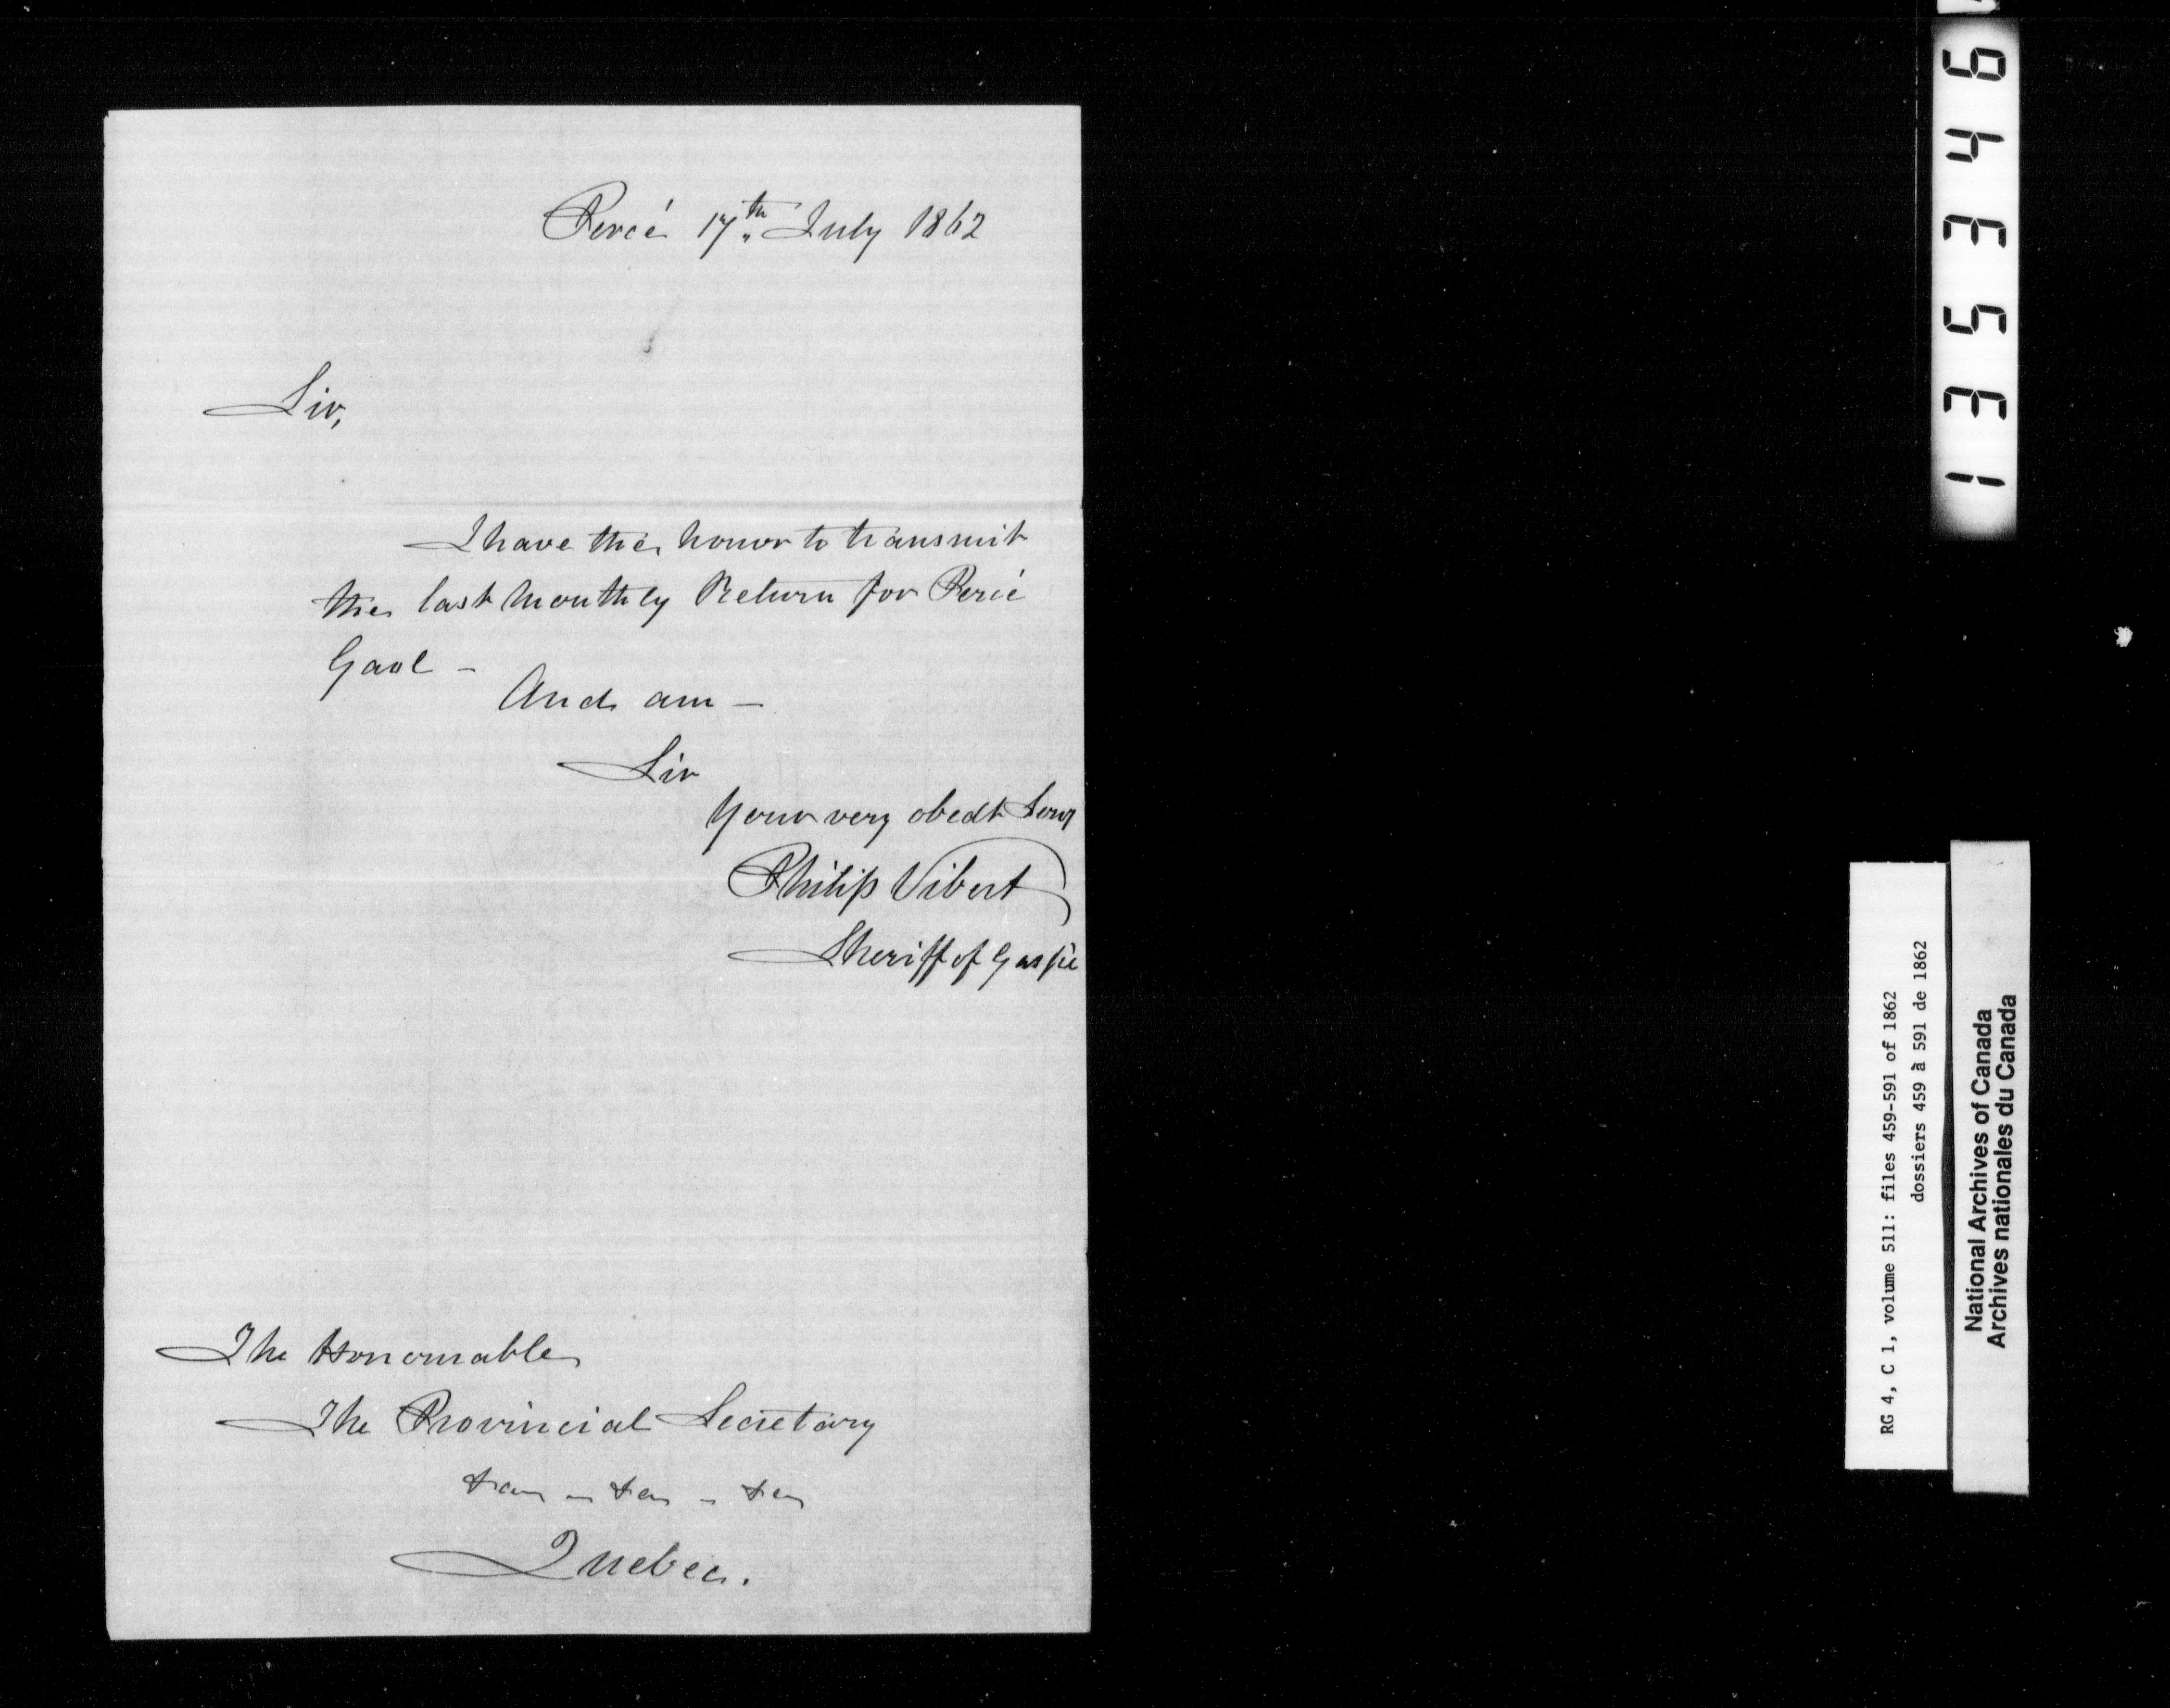 Percé 17th July 1862
Sir,
I have the honor to transmit
the last Monthly Return for Percé
Gaol -
And am -
Sir
Your very obedt Servt
Philip Vibert
Sheriff of Gaspé
The Honourable
The Provincial Secretary
&c - &c - &c
Quebec.
135346
RG 4, C 1, volume 511: files 459-591 of 1862
dossiers 459 à 591 de 1862
National Archives of Canada
Archives nationales du Canada